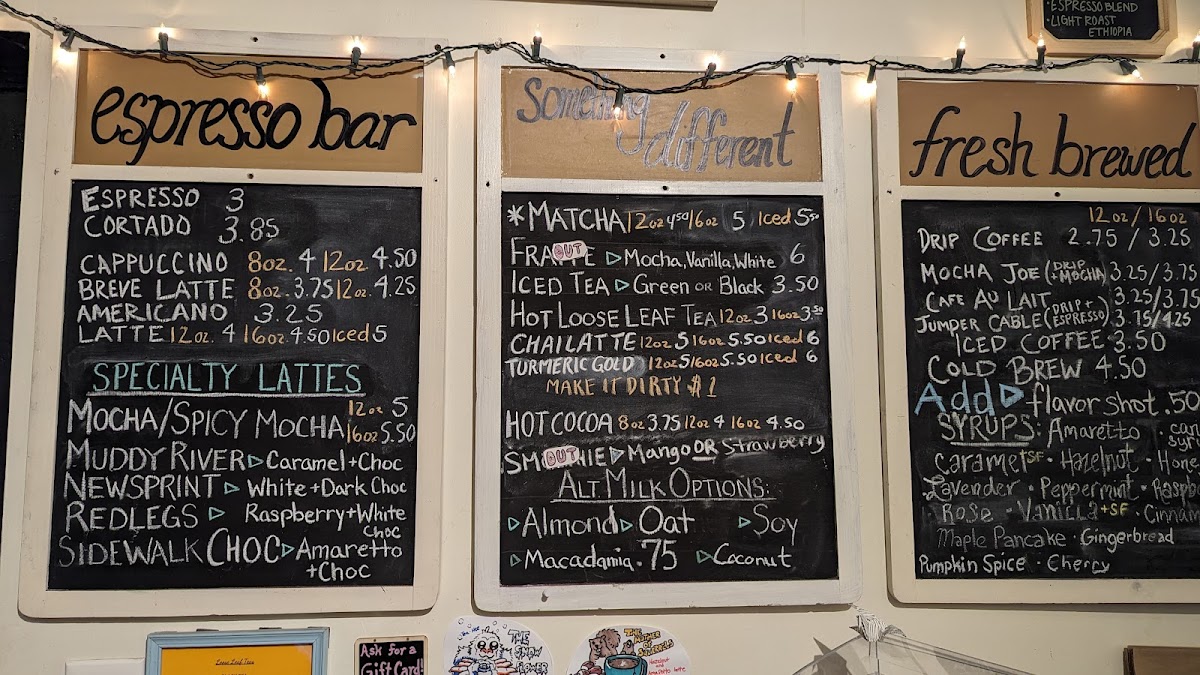 espresso bar
ESPRESSO 3
CORTADO 3.85
CAPPUCCINO 8oz. 4 12oz. 4.50
BREVE LATTE 8oz. 3.75 12oz. 4.25
AMERICANO 3.25
LATTE 12oz. 4 16oz. 4.50 Iced 5
SPECIALTY LATTES
MOCHA/SPICY MOCHA 12oz 5
16oz 5.50
MUDDY RIVER ▷ Caramel + Choc
NEWSPRINT ▷ White + Dark Choc
REDLEGS ▷ Raspberry + White
Choc
SIDEWALK CHOC ▷ Amaretto
+ Choc
Something
different
*MATCHA 12oz 4.50/16oz 5 Iced 5.50
FRAPPE OUT ▷ Mocha, Vanilla, White 6
ICED TEA ▷ Green OR Black 3.50
HOT LOOSE LEAF TEA 12oz 3 16oz 3.50
CHAI LATTE 12oz 5 16oz 5.50 Iced 6
TURMERIC GOLD 12oz 5/16oz 5.50 Iced 6
MAKE IT DIRTY $1
HOT COCOA 8oz 3.75 12oz 4 16oz 4.50
SMOOTHIE OUT ▷ Mango OR Strawberry
ALT MILK OPTIONS:
▷ Almond ▷ Oat ▷ Soy
▷ Macadamia .75 ▷ Coconut
ESPRESSO BLEND
• LIGHT ROAST
ETHIOPIA
fresh brewed
12oz / 16oz
DRIP COFFEE 2.75 / 3.25
MOCHA JOE (DRIP + MOCHA) 3.25/3.75
CAFE AU LAIT 3.25/3.75
JUMPER CABLE (DRIP + ESPRESSO) 3.75/4.25
ICED COFFEE 3.50
COLD BREW 4.50
Add ▷ flavor shot .50
SYRUPS: Amaretto
Caramel SF • Hazelnut
Lavender • Peppermint
Rose • Vanilla + SF
Maple Pancake • Gingerbread
Pumpkin Spice • Cherry
Loose Leaf Teas
ASK for a
Gift Card!
THE
SNOW
FLOWER
THE
MOTHER OF
SQUIRRELS
Hazelnut
and
Amaretto latte